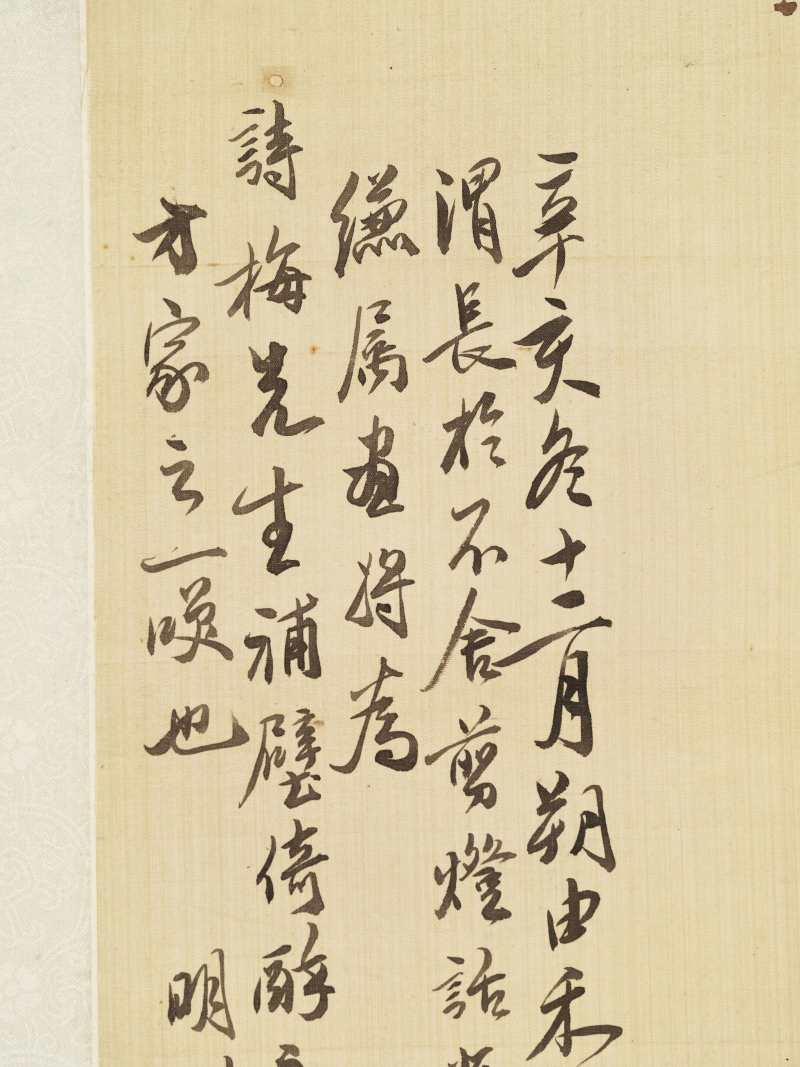 辛亥冬十二月朔由禾
渭長於不舍剪燈話
縑属畫將為
詩梅先生補壁倚醉
方家之一噗也
明